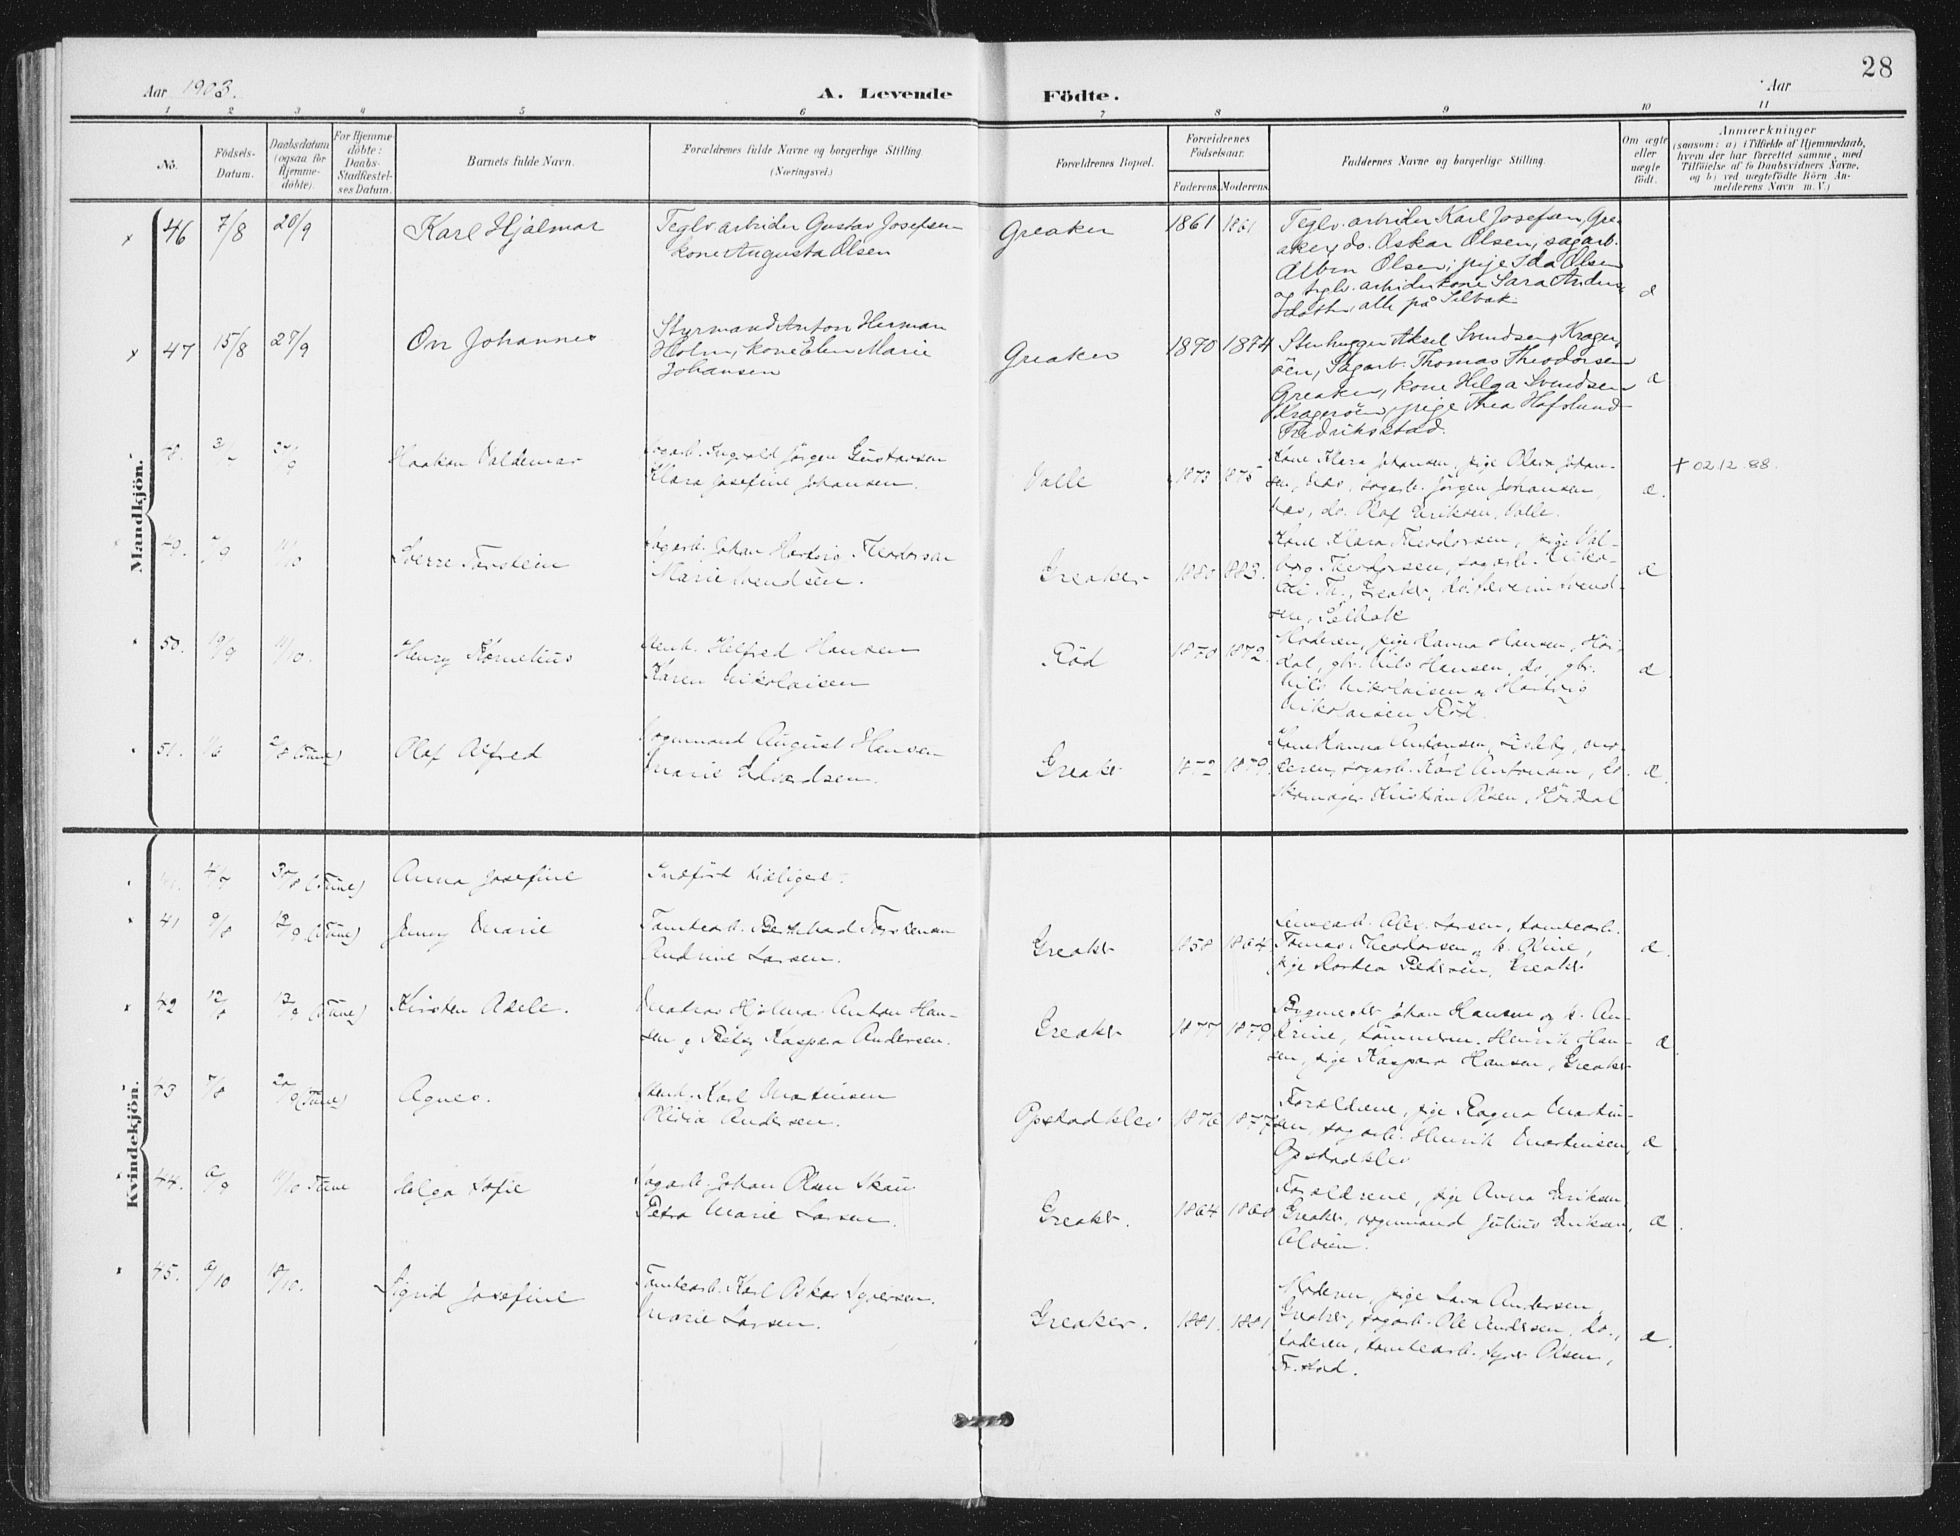 28
Aar 1903.
A. Levende Födte.
Aar
1 2 3 4 5 6 7 8 9 10 11
No.
Födsels-
Datum.
Daabsdatum
(ogsaa for
Hjemme-
döbte).
For Hjemme-
döbte:
Daabs-
Stadfæstel-
ses Datum.
Barnets fulde Navn.
Forældrenes fulde Navne og borgerlige Stilling.
(Næringsvei.)
Forældrenes Bopæl.
Forældrenes
Födselsaar.
Faderens.
Moderens.
Faddernes Navne og borgerlige Stilling.
Om ægte
eller
uægte
födt.
Anmærkninger
(saasom: a) i Tilfælde af Hjemmedaab,
hvem der har forrettet samme, med
Tilföielse af to Daabsvidners Navne,
og b) ved uægtefödte Börn An-
melderens Navn m. V.)
Mandkjön.
x 46 7/8 20/9 Karl Hjalmar
Teglv.arbeider Gustav Josefsen
kone Augusta Olsen
Greaker 1861 1861
Teglv.arbeider Karl Josefsen, Gre-
aker, do. Oskar Olsen, sagarb.
Albin Olsen, pige Ida Olsen
og teglv.arbeiderkone Sara Anders-
datter, alle på Selbak
æ
x 47 15/8 27/9 Johannes
Styrmand Anton Herman
Holm, kone Elen Marie
Johansen
Greaker 1870 1874
Stenhugger Aksel Svendsen, Krager-
öen, Sagarb. Thomas Theodorsen
Greaker, kone Helga Svendsen
Krageröen, pige Thea Hafslund
Fredriksstad.
æ
48. Haakon Valdemar
Sagarb. Ingvald Jörgen Gustavsen
Klara Josefine Johansen.
Valle 1873 1875
Kone Klara Johansen, pige Olava Johan-
sen, sagarb. Jörgen Johansen,
do. Olaf Eriksen, Valle.
æ.
+ 02.12.88.
49. 11/10 Sverre Torstein
Sagarb. Johan Hartvig Theodorsen
Marie Svendsen.
Greaker 1880 1883.
Kone Klara Theodorsen, pige Val-
borg Theodorsen, sagarb. Niko-
lai Th., Greaker, do. Severin Svend-
sen, Selbak
æ
50. 19/9 11/10. Henry Kornelius
Stenh. Helfred Hansen
Karen Nikolaisen
Röd 1870 1872.
Moderen, pige Hanna Hansen, Höi-
dal, gbr. Nils Hansen, do, gbr.
Nils Nikolaisen og Hartvig
Nikolaisen Röd.
æ.
51. (Tune) Olaf Alfred
Vognmand August Hansen
Marie Edvardsen.
Greaker 1872 1879.
Kone Hanna Antonsen, mo-
deren, sagarb. Karl Antonsen, do.
Skomager Kristian Olsen, Höidal
æ.
Kvindekjön.
30/8 (Tune) Anna Josefine
Indfört tidligere.
41 9/8 13/9 (Tune) Jenny Marie
Tomtearb. Bernhard Torstensen
Andrine Larsen.
Greaker 1858 1864.
Lensearb. Alex. Larsen, tomtearb.
Tomas Theodorsen og k. Oline,
pige Martea Pedersen, Greaker
æ
42 12/8 13/9 (Tune) Kirsten Adele.
Matros Hjalmar Anton Han-
sen og Kaspara Andersen.
Greaker 1877 1879
Bygmester Johan Hansen og k. An-
drine, tömmerm. Henrik Han-
sen, pige Kaspara Hansen, Greaker
æ.
43 7/8 20/9 (Tune) Agnes.
Stenh. Karl Martinsen
Andersen.
Opstadklev 1876 1877
Forældrene, pige Ragna Martin-
sen, sagarb. Henrik Martinsen,
Opstadklev
æ
44. 6/9 11/10 Tune Helga Sofie
Sagarb. Johan Olsen Skau
Petra Marie Larsen.
Greaker. 1864 1860
Forældrene, pige Anna Eriksen,
Greaker, vognmand Julius Eriksen,
æ.
45. 6/10 18/10. Sigrid Josefine
Tomtearb. Karl Oskar Syversen.
Marie Larsen.
Greaker. 1881. 1881
Moderen, pige Lava Andersen,
Greaker, sagarb. Ole Andersen, do.,
faderen, tomtearb. Syver Olsen,
Fr.stad.
æ.